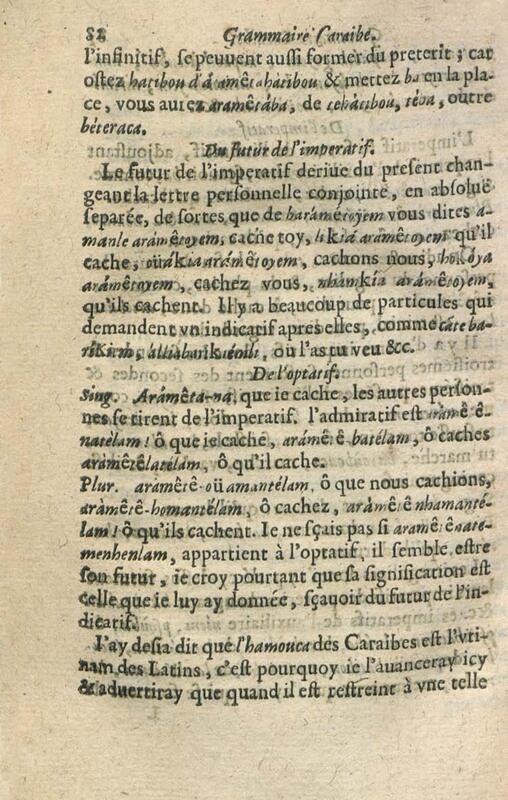 82 Grammaire Caraibe.
l'infinitif, se peuuent aussi former du preterit; car
ostez hatibou d'aramêtahatibou & mettez ba en la pla-
ce, vous aurez aramêtába, de tehátibou, téba, outre
béteraca.
Du futur de l'imperatif.
Le futur de l'imperatif dériue du present chan-
geant la lettre personnelle conjointe, en absoluë
separée, de sortes que de harámêtoyem vous dites a-
manle arámêtoyem, cache toy, likiá arámêtoyem qu'il
cache, oüákia arámêtoyem, cachons nous, hokóya
arámêtoyem, cachez vous, nhánkia arámêtoyem,
qu'ils cachent. Il y a beaucoup de particules qui
demandent vn indicatif apres elles, comme cáte ba-
rikirm, alliabarikuéoili, ou l'as tu veu &c.
De l'optatif.
Sing. Arámêta-na, que ie cache, les autres person-
nes se tirent de l'imperatif. l'admiratif est arámê ê-
natélam! ô que ie cache, arámêrê-batélam, ô caches
arámêrêlatélam, ô qu'il cache.
Plur. arámêrê-oüamantélam, ô que nous cachions,
arámêrê-homantélam, ô cachez, arámêrê nhamanté-
lam! ô qu'ils cachent. Ie ne sçais pas si aramêrênate-
menhenlam, appartient à l'optatif, il semble estre
son futur, ie croy pourtant que sa signification est
celle que ie luy ay donnée, sçauoir du futur de l'in-
dicatif.
I'ay desia dit que l'hamouca des Caraibes est l'vti-
nam des Latins, c'est pourquoy ie l'auanceray icy
& aduertiray que quand il est restreint à vne telle